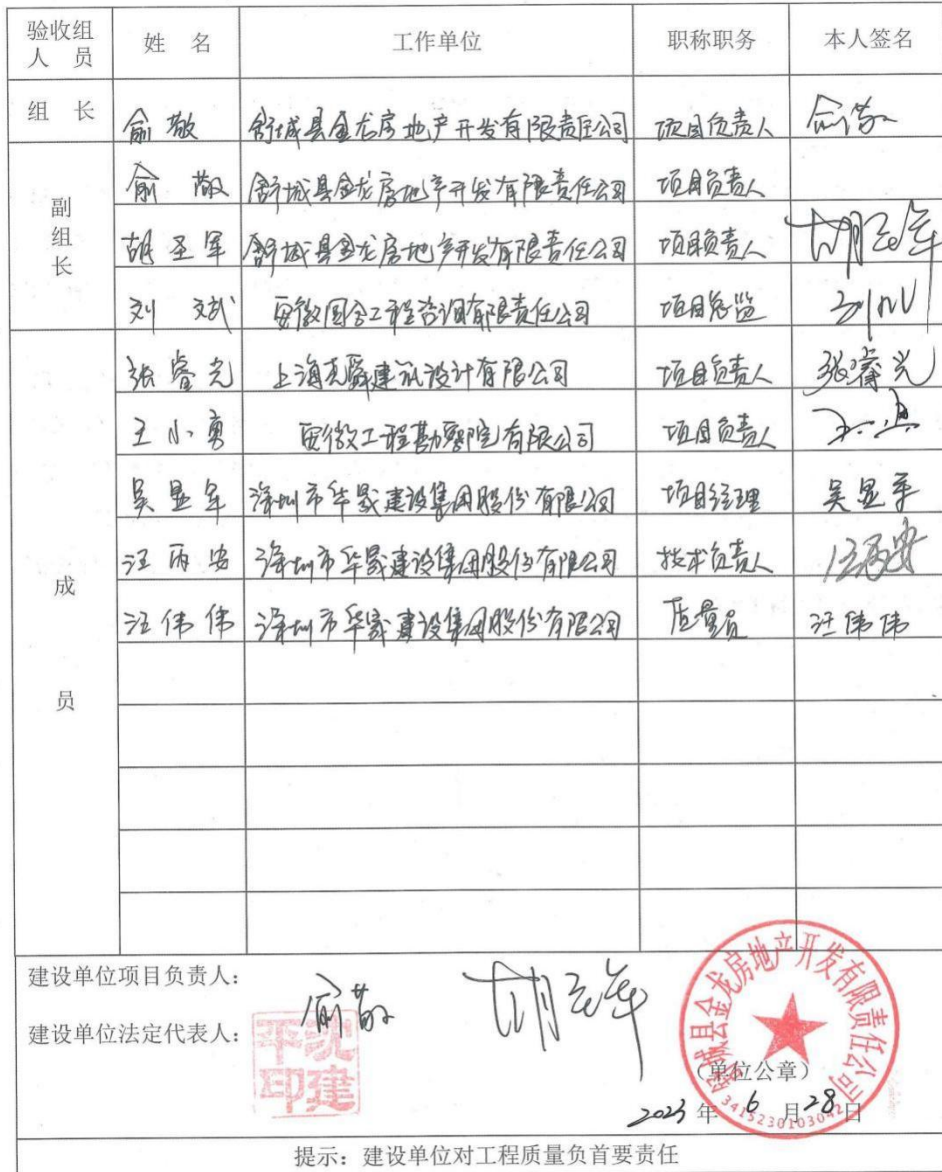 验收组人员 姓 名 工作单位 职称职务 本人签名
组 长 俞敬 舒城县金龙房地产开发有限责任公司 项目负责人 俞敬
副组长 俞敬 舒城县金龙房地产开发有限责任公司 项目负责人
胡圣军 舒城县金龙房地产开发有限责任公司 项目负责人 胡圣军
刘斌 安徽国合工程咨询有限责任公司 项目总监
成员 张睿光 上海尧舜建筑设计有限公司 项目负责人 张睿光
王小勇 安徽工程勘察院有限公司 项目负责人
吴显军 深圳市华晟建设集团股份有限公司 项目经理 吴显军
汪丙安 深圳市华晟建设集团股份有限公司 技术负责人 汪丙安
汪伟伟 深圳市华晟建设集团股份有限公司 质量员 汪伟伟
建设单位项目负责人: 俞敬 胡圣军
建设单位法定代表人:
沈建平印
舒城县金龙房地产开发有限责任公司
(单位公章)
3415230103042
2023 年 6 月 28 日
提示:建设单位对工程质量负首要责任